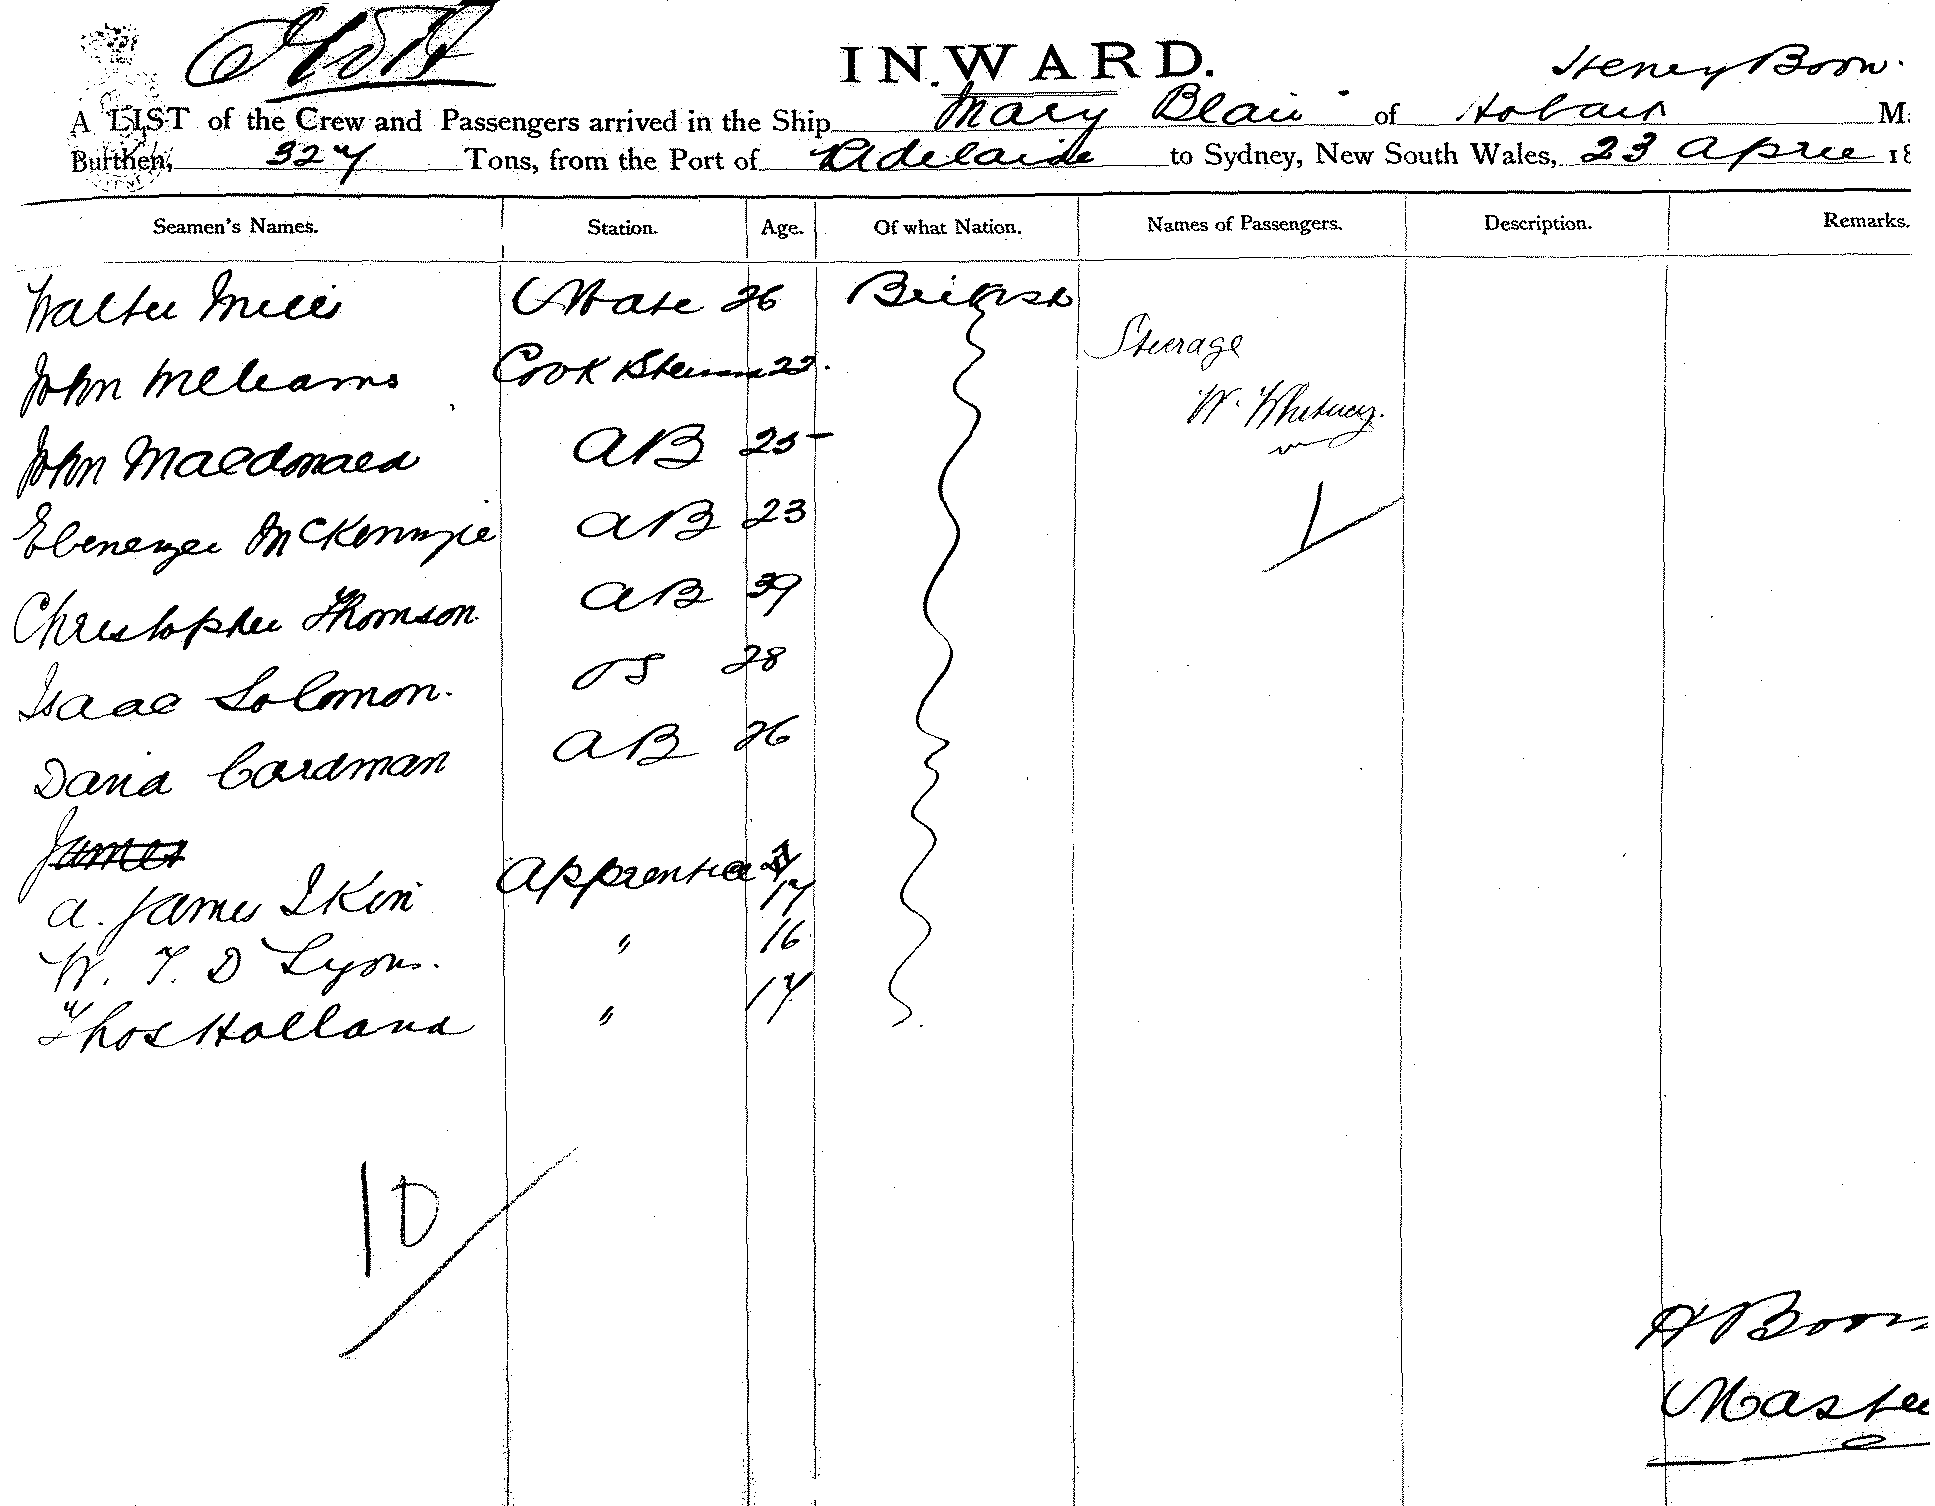 INWARD.
Henry Boon.
A LIST of the Crew and Passengers arrived in the Ship Mary Blair of Hobart
Burthen, 327 Tons, from the Port of Adelaide to Sydney, New South Wales, 23 April 18
Seamen's Names. Station. Age. Of what Nation. Names of Passengers. Description. Remarks.
Walter Mills Mate 26 British
Steerage
John Williams Cook 22.
W. Whitney.
John Macdonald AB 25
Ebenezer McKennzie AB 23
1
Christopher Thomson AB 39
Isaac Solomon. OS 28
David Cardman AB 26
James
a. James Ikin Apprentice 17
W. T. D Lyons. " 16
Thos Holland " 17
10
H Boon
Master